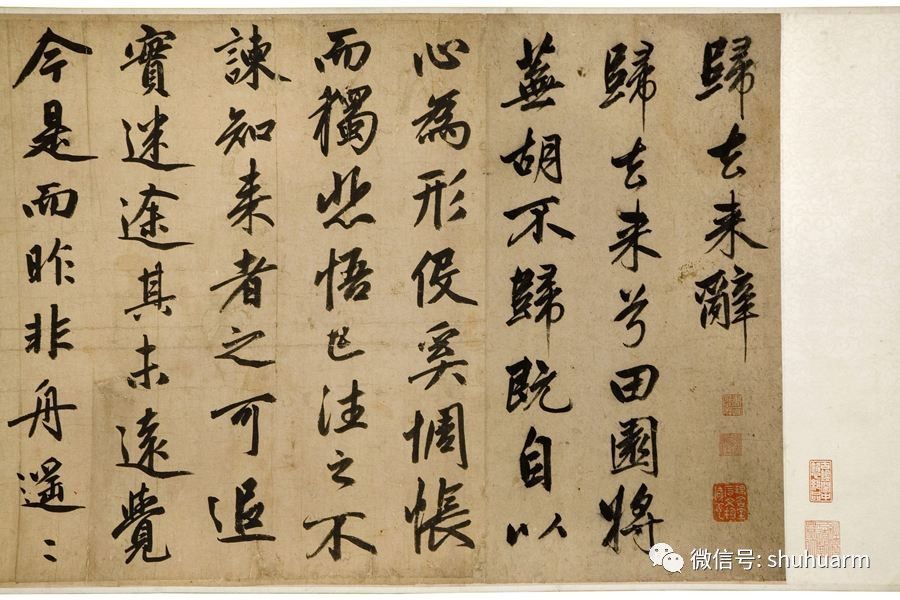 歸去来辭
歸去来兮田園將
蕪胡不歸既自以
心為形伇奚惆悵
而獨悲悟已往之不
諫知来者之可追
實迷途其未遠覺
今是而昨非舟遥〻
微信号: shuhuarm